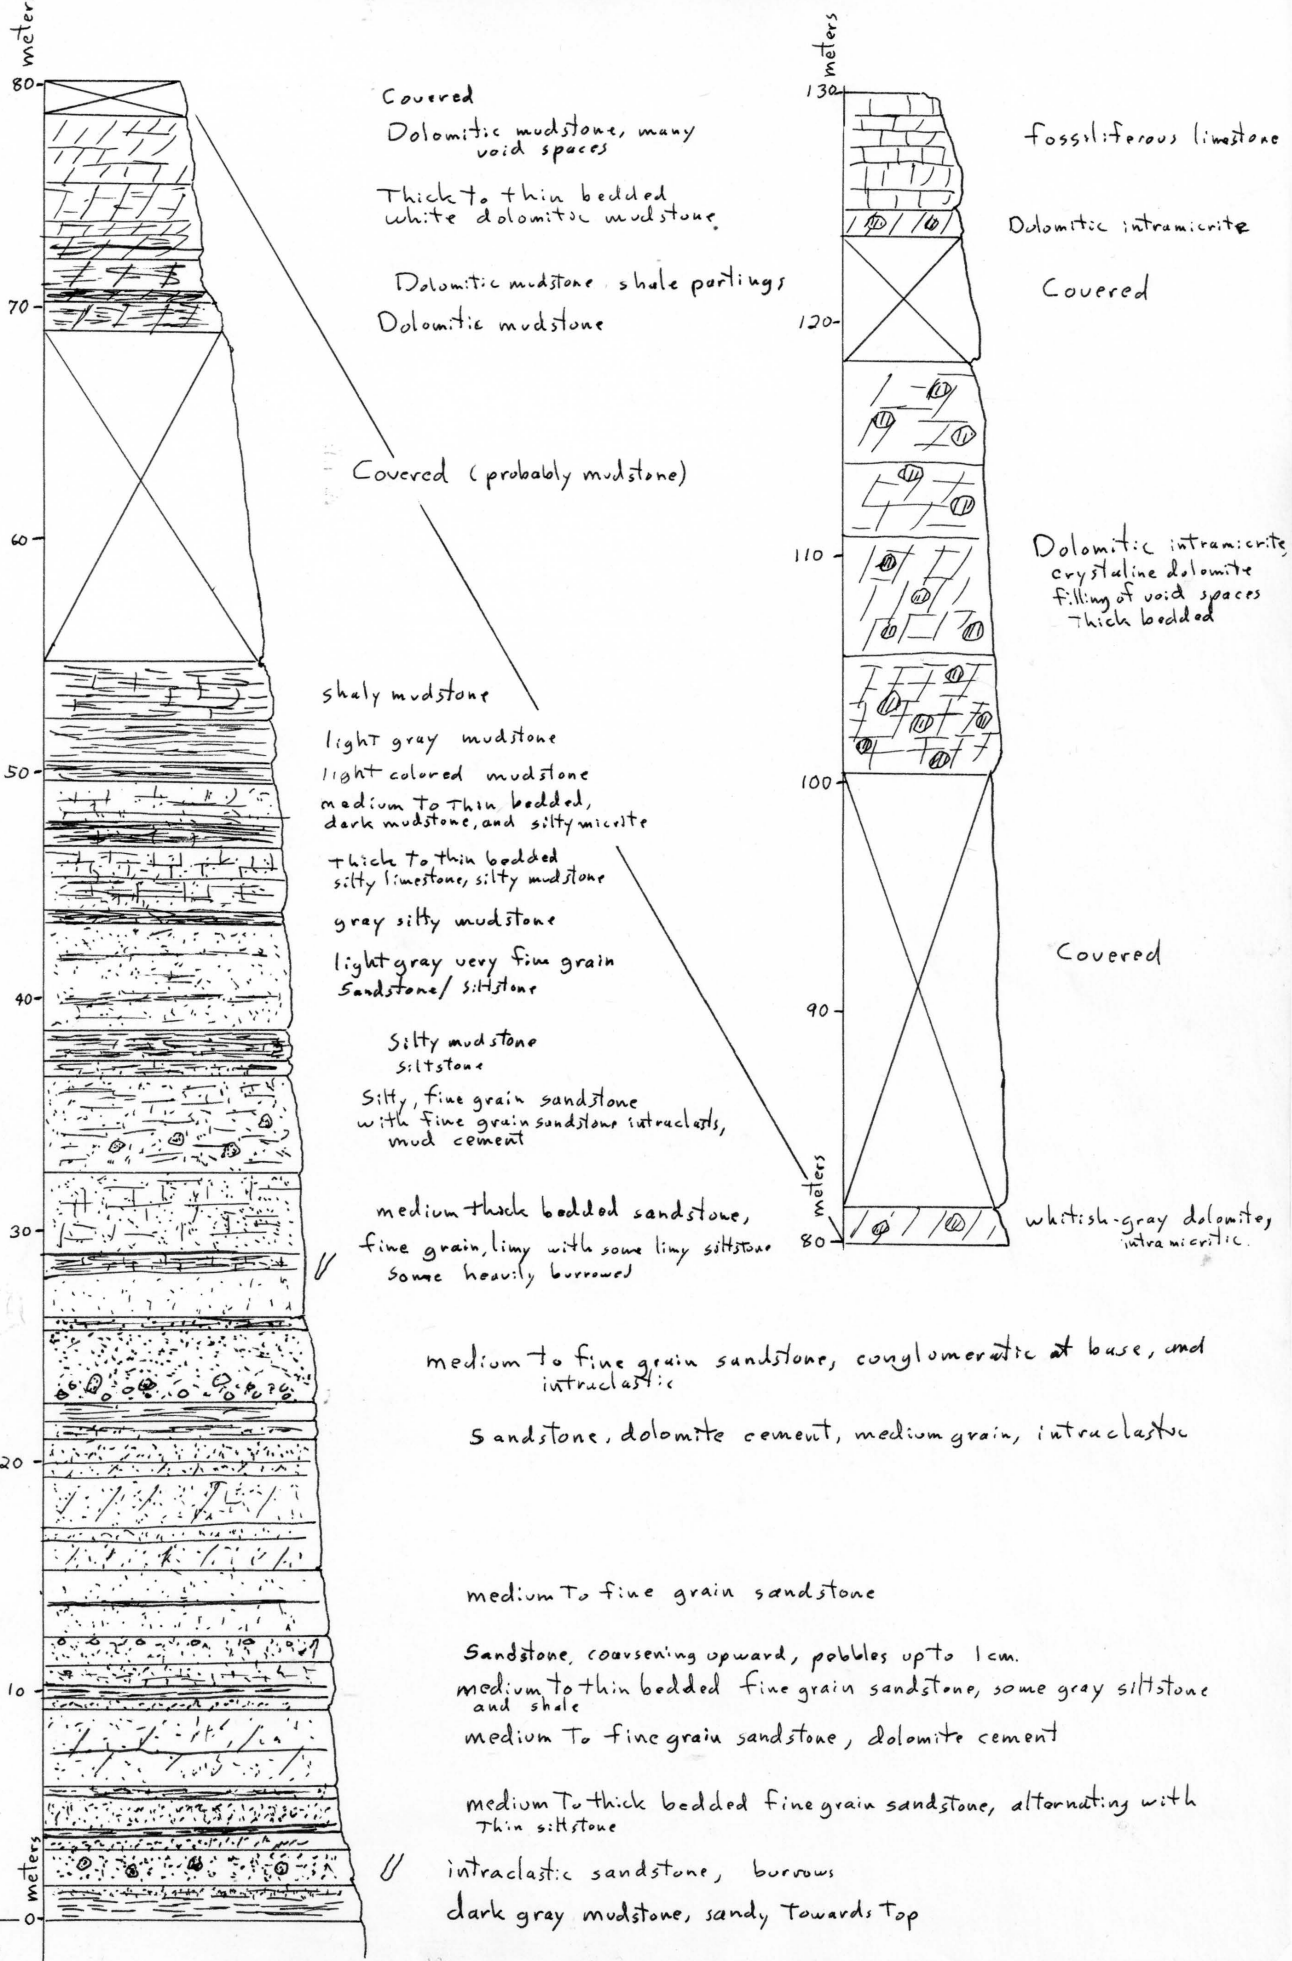 meter
80
Covered
Dolomitic mudstone, many
void spaces
Thick to thin bedded
white dolomitic mudstone.
Dolomitic mudstone shale partings
70
Dolomitic mudstone
Covered (probably mudstone)
60
shaly mudstone
light gray mudstone
50
light colored mudstone
medium to Thin bedded,
dark mudstone, and silty micrite
thick to thin bedded
silty limestone, silty mudstone
gray silty mudstone
light gray very fine grain
Sandstone/ siltstone
40
Silty mudstone
siltstone
Silty, fine grain sandstone
with fine grain sandstone intraclasts,
mud cement
medium thick bedded sandstone,
30
fine grain, limy with some limy siltstone
some heavily burrowed
medium to fine grain sandstone, conglomeratic at base, and
intraclastic
Sandstone, dolomite cement, medium grain, intraclastic
20
medium To fine grain sandstone
Sandstone, coarsening upward, pebbles up to 1 cm.
10
medium to thin bedded fine grain sandstone, some gray siltstone
and shale
medium To fine grain sandstone, dolomite cement
medium To thick bedded fine grain sandstone, alternating with
Thin siltstone
meters
intraclastic sandstone, burrows
0
dark gray mudstone, sandy Towards Top
meters
130
fossiliferous limestone
Dolomitic intramicrite
Covered
120
110
Dolomitic intramicrite,
crystaline dolomite
filling of void spaces
Thick bedded
100
Covered
90
meters
80
whitish-gray dolomite,
intramicritic.